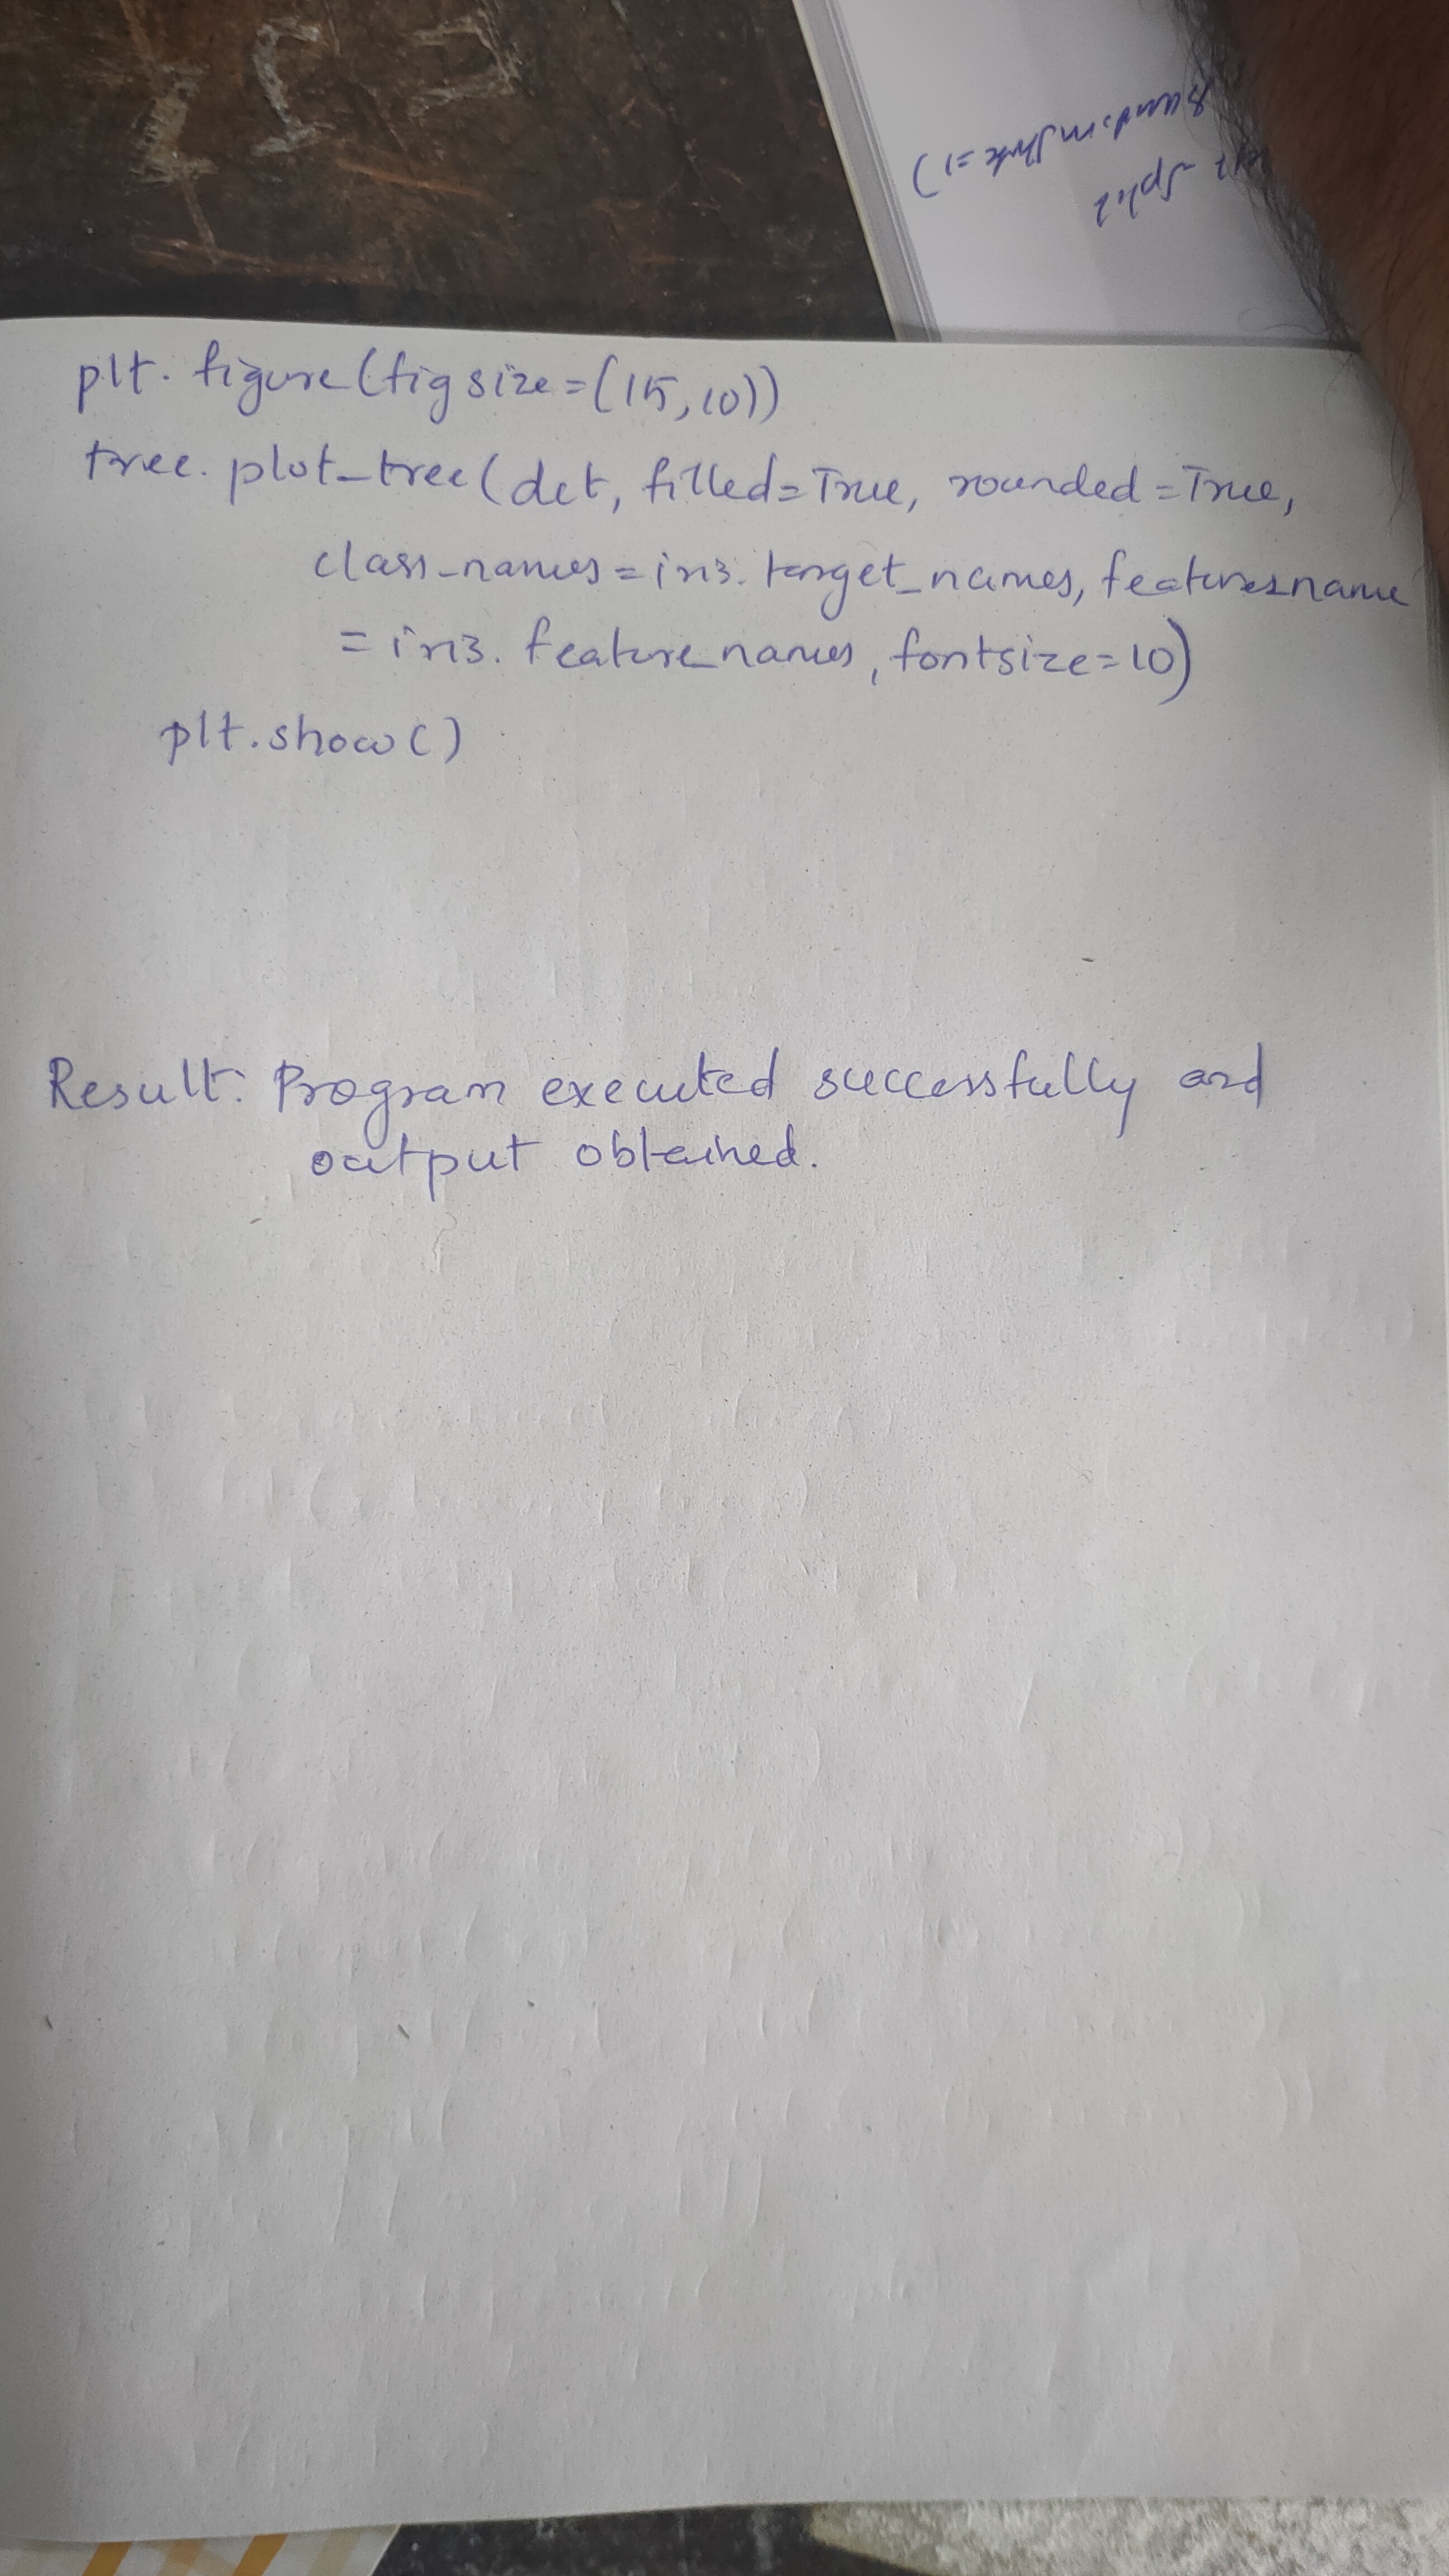 random state=1)
split
plt. figure(figsize=(15,10))
tree. plot_tree(dct, filled=True, rounded=True,
class_names=iris. target_names, features_name
= iris. feature_names, fontsize=10)
plt.show()
Result: Program executed successfully and
output obtained.